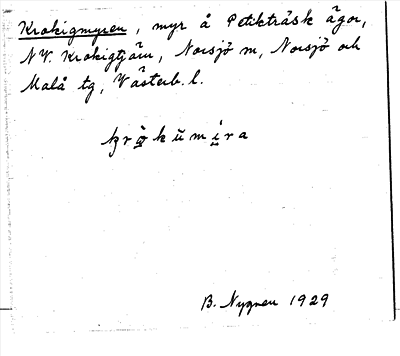 Krokigmyren, myr å Petikträsk ägor,
NV. Krokigtjärn, Norsjö m, Norsjö och
Malå tg, Västerb. l.
B. Nygren 1929